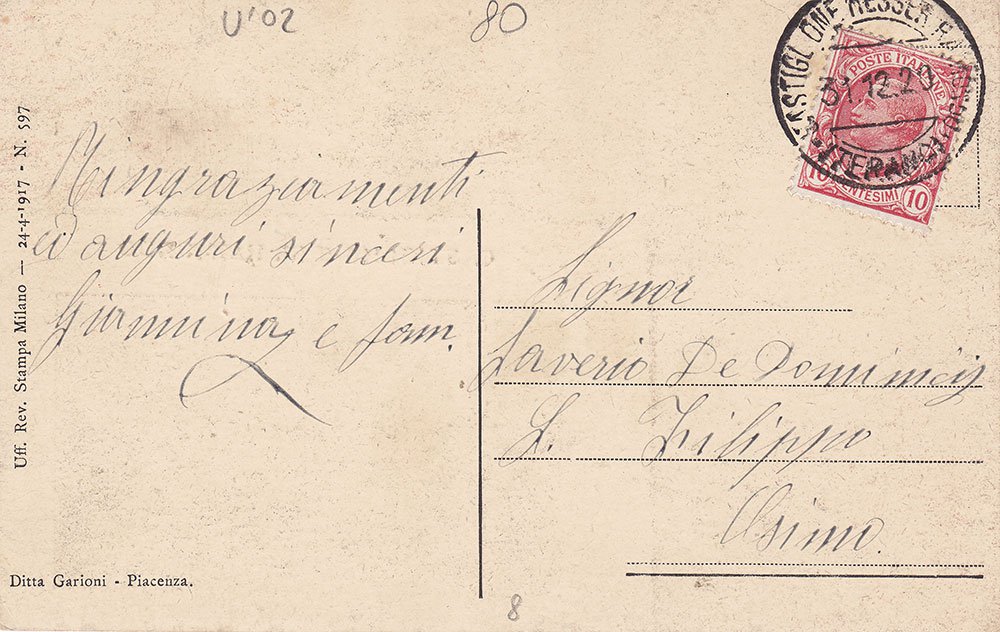 U'02
80
CASTIGLIONE MESSER RAIMONDO
31.12.2
(TERAMO)
POSTE ITALIANE
10 CENTESIMI 10
Uff. Rev. Stampa Milano — 24-4-1917 - N. 597
Ringraziamenti
ed auguri sinceri
Giannina e fam.
Signor
Saverio De Dominicis
S. Filippo
Osimo.
Ditta Garioni - Piacenza.
8